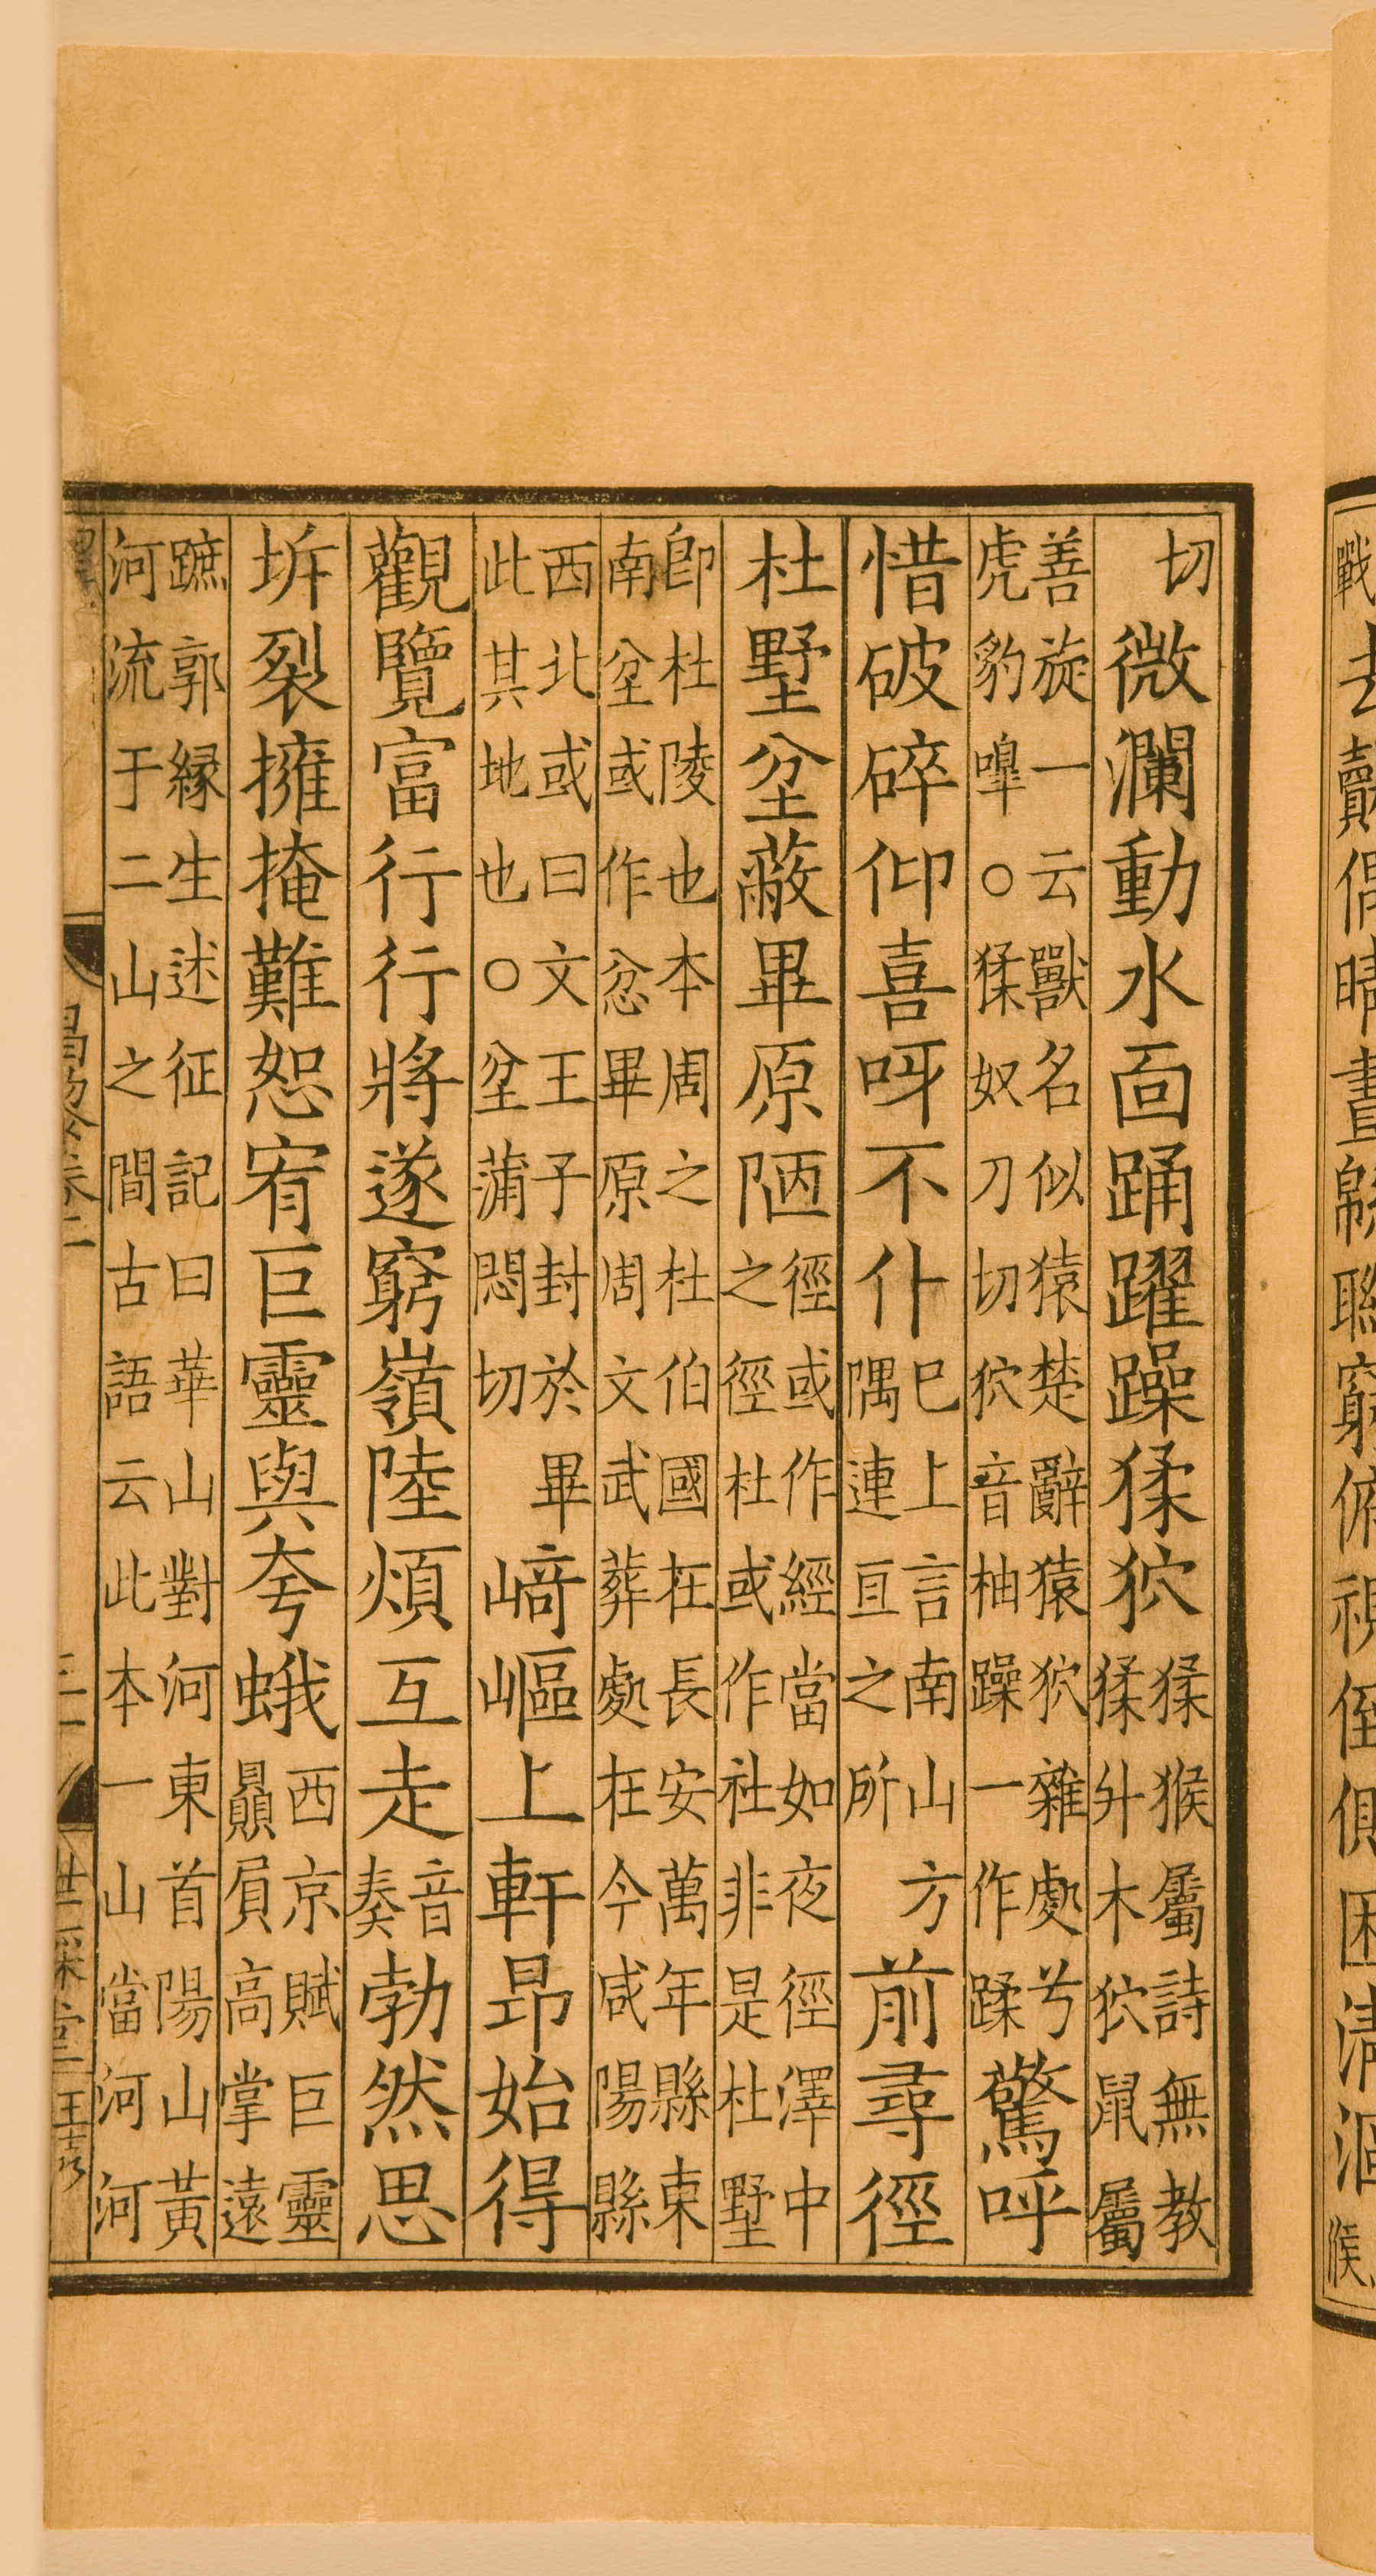 切微瀾動水面踊躍躁猱狖猱猴屬詩無教猱升木狖鼠屬
善旋一云獸名似猿楚辭猿狖雜處兮虎豹嘷○猱奴刀切狖音柚躁一作蹂驚呼
惜破碎仰喜呀不仆巳上言南山方隅連亘之所前尋徑
杜墅坌蔽畢原陋徑或作經當如夜徑澤中之徑杜或作社非是杜墅
即杜陵也本周之杜伯國在長安萬年縣東南坌或作忿畢原周文武葬處在今咸陽縣
西北或曰文王子封於畢此其地也○坌蒲悶切崎嶇上軒昂始得
觀覽富行行將遂窮嶺陸煩互走音奏勃然思
坼裂擁掩難恕宥巨靈與夸蛾西京賦巨靈贔屓高掌遠
蹠郭縁生述征記曰華山對河東首陽山黃河流于二山之間古語云此本一山當河河
昌黎卷二
世綵堂